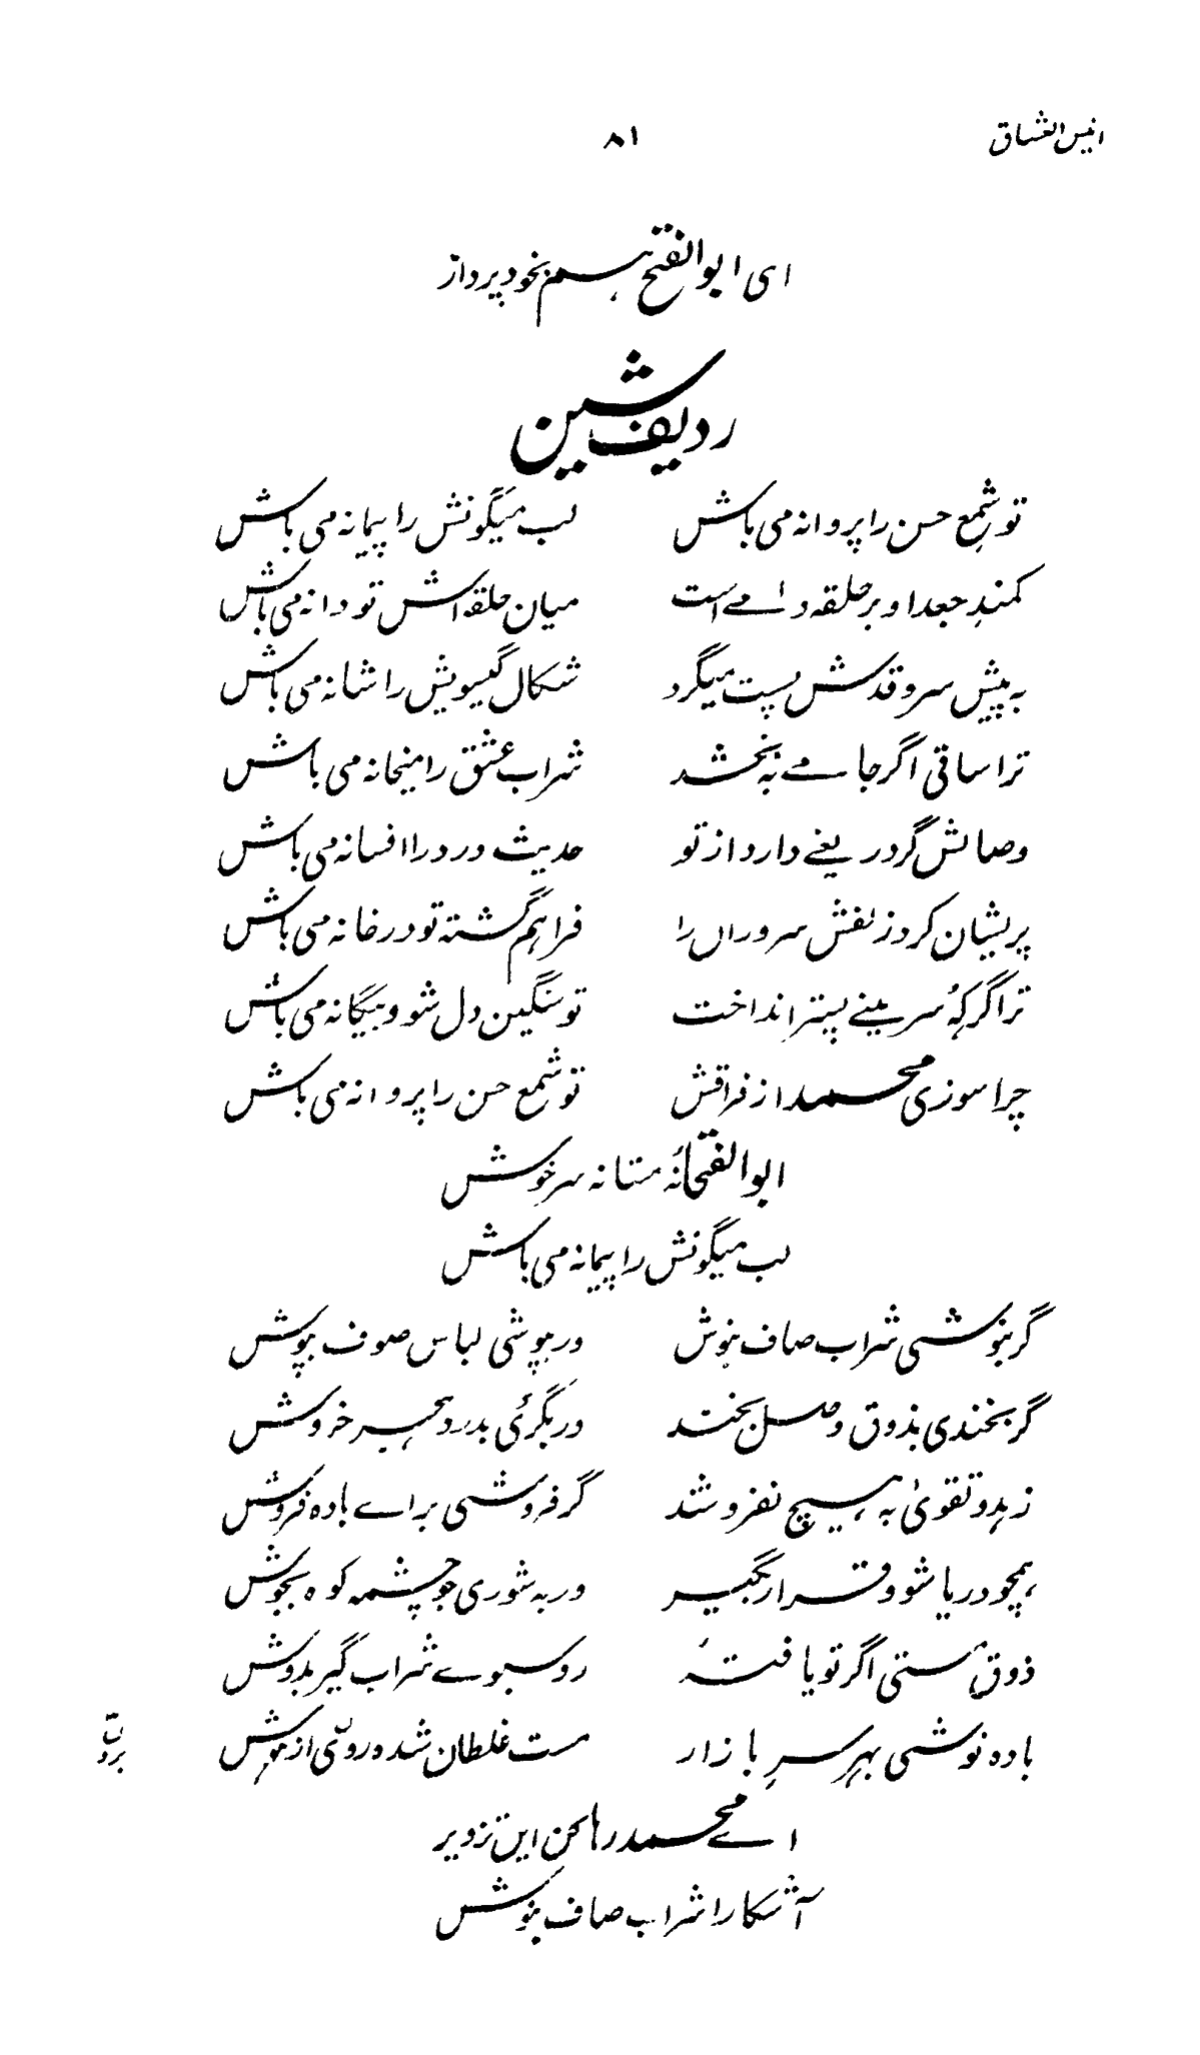 انیس العشاق ۸۱
ای ابوالفتح ہم بخود پرداز
ردیف شین
تو شمع حسن را پروانہ می باش لب میگونش را پیمانہ می باش
کمندِ جعد او ہر حلقہ دامے است میان حلقہ اش تو دانہ می باش
بہ پیش سرو قدش پست میگرد شکال گیسویش را شانہ می باش
ترا ساقی اگر جامے نہ بخشد شراب عشق را میخانہ می باش
وصالش گر دریغے دارد از تو حدیث درد را افسانہ می باش
پریشان کرد زلفش سروران را فراہم گشتہ تو در خانہ می باش
ترا گر کہ سر بینے پستر انداخت تو سنگین دل شو و بیگانہ می باش
چرا سوزی محمد از فراقش تو شمع حسن را پروانہ می باش
ابوالفتحانہ مستانہ سرخوش
لب میگونش را پیمانہ می باش
گر بنوشی شراب صاف بنوش ور بپوشی لباس صوف بپوش
گر بخندی بذوق وصل بخند ور بگرئی بدرد ہجر خروش
زہد و تقویٰ بہ ہیچ نفروشند گر فروشی براے بادہ فروش
ہمچو دریا شو و قرار بگیر ور بہ شوری چو چشمہ کوہ بجوش
ذوق مستی اگر تو یافتۂ رو سبوے شراب گیر بدوش
بادہ نوشی بہر سر بازار مست غلطان شد و روی از ہوش
اے محمد رہا کن این تزویر
آشکارا شراب صاف بنوش